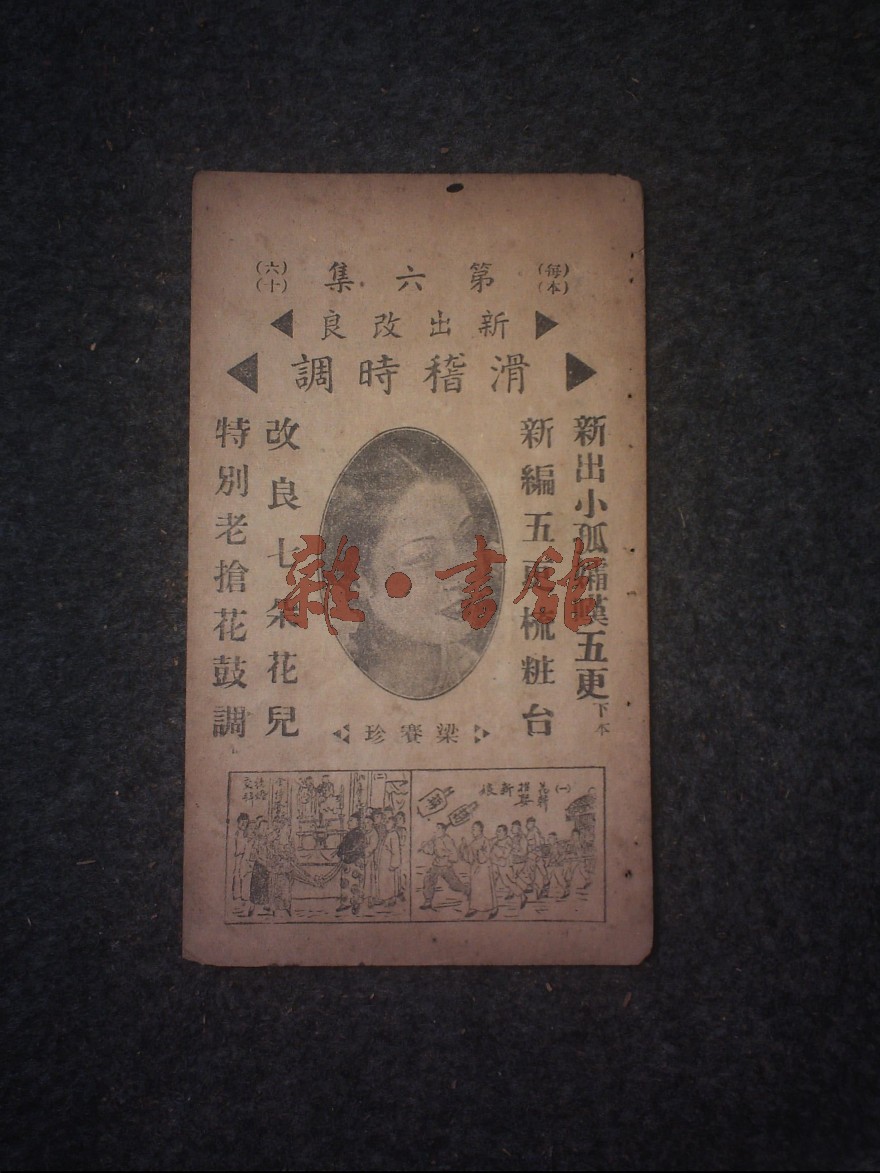 第六集
(每本)
(六十)
新出改良
滑稽時調
新出小孤孀嘆五更
下本
新編五更梳粧台
改良七朵花兒
特別老搶花鼓調
梁賽珍
雜·書館
(一)